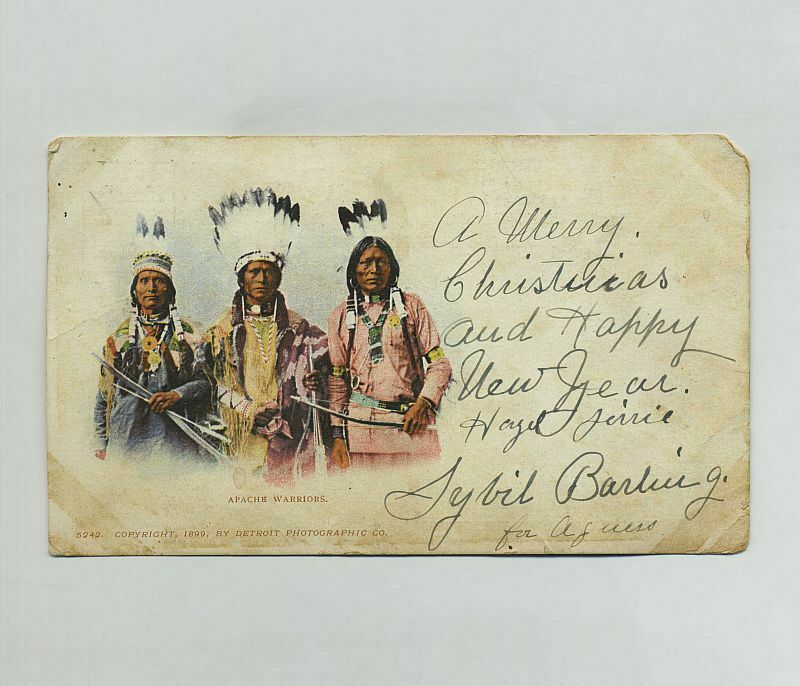 A Merry.
Christmas
and Happy
New Year.
Hazel
Sybil Barling.
for Agness
APACHE WARRIORS.
5242. COPYRIGHT, 1899, BY DETROIT PHOTOGRAPHIC CO.